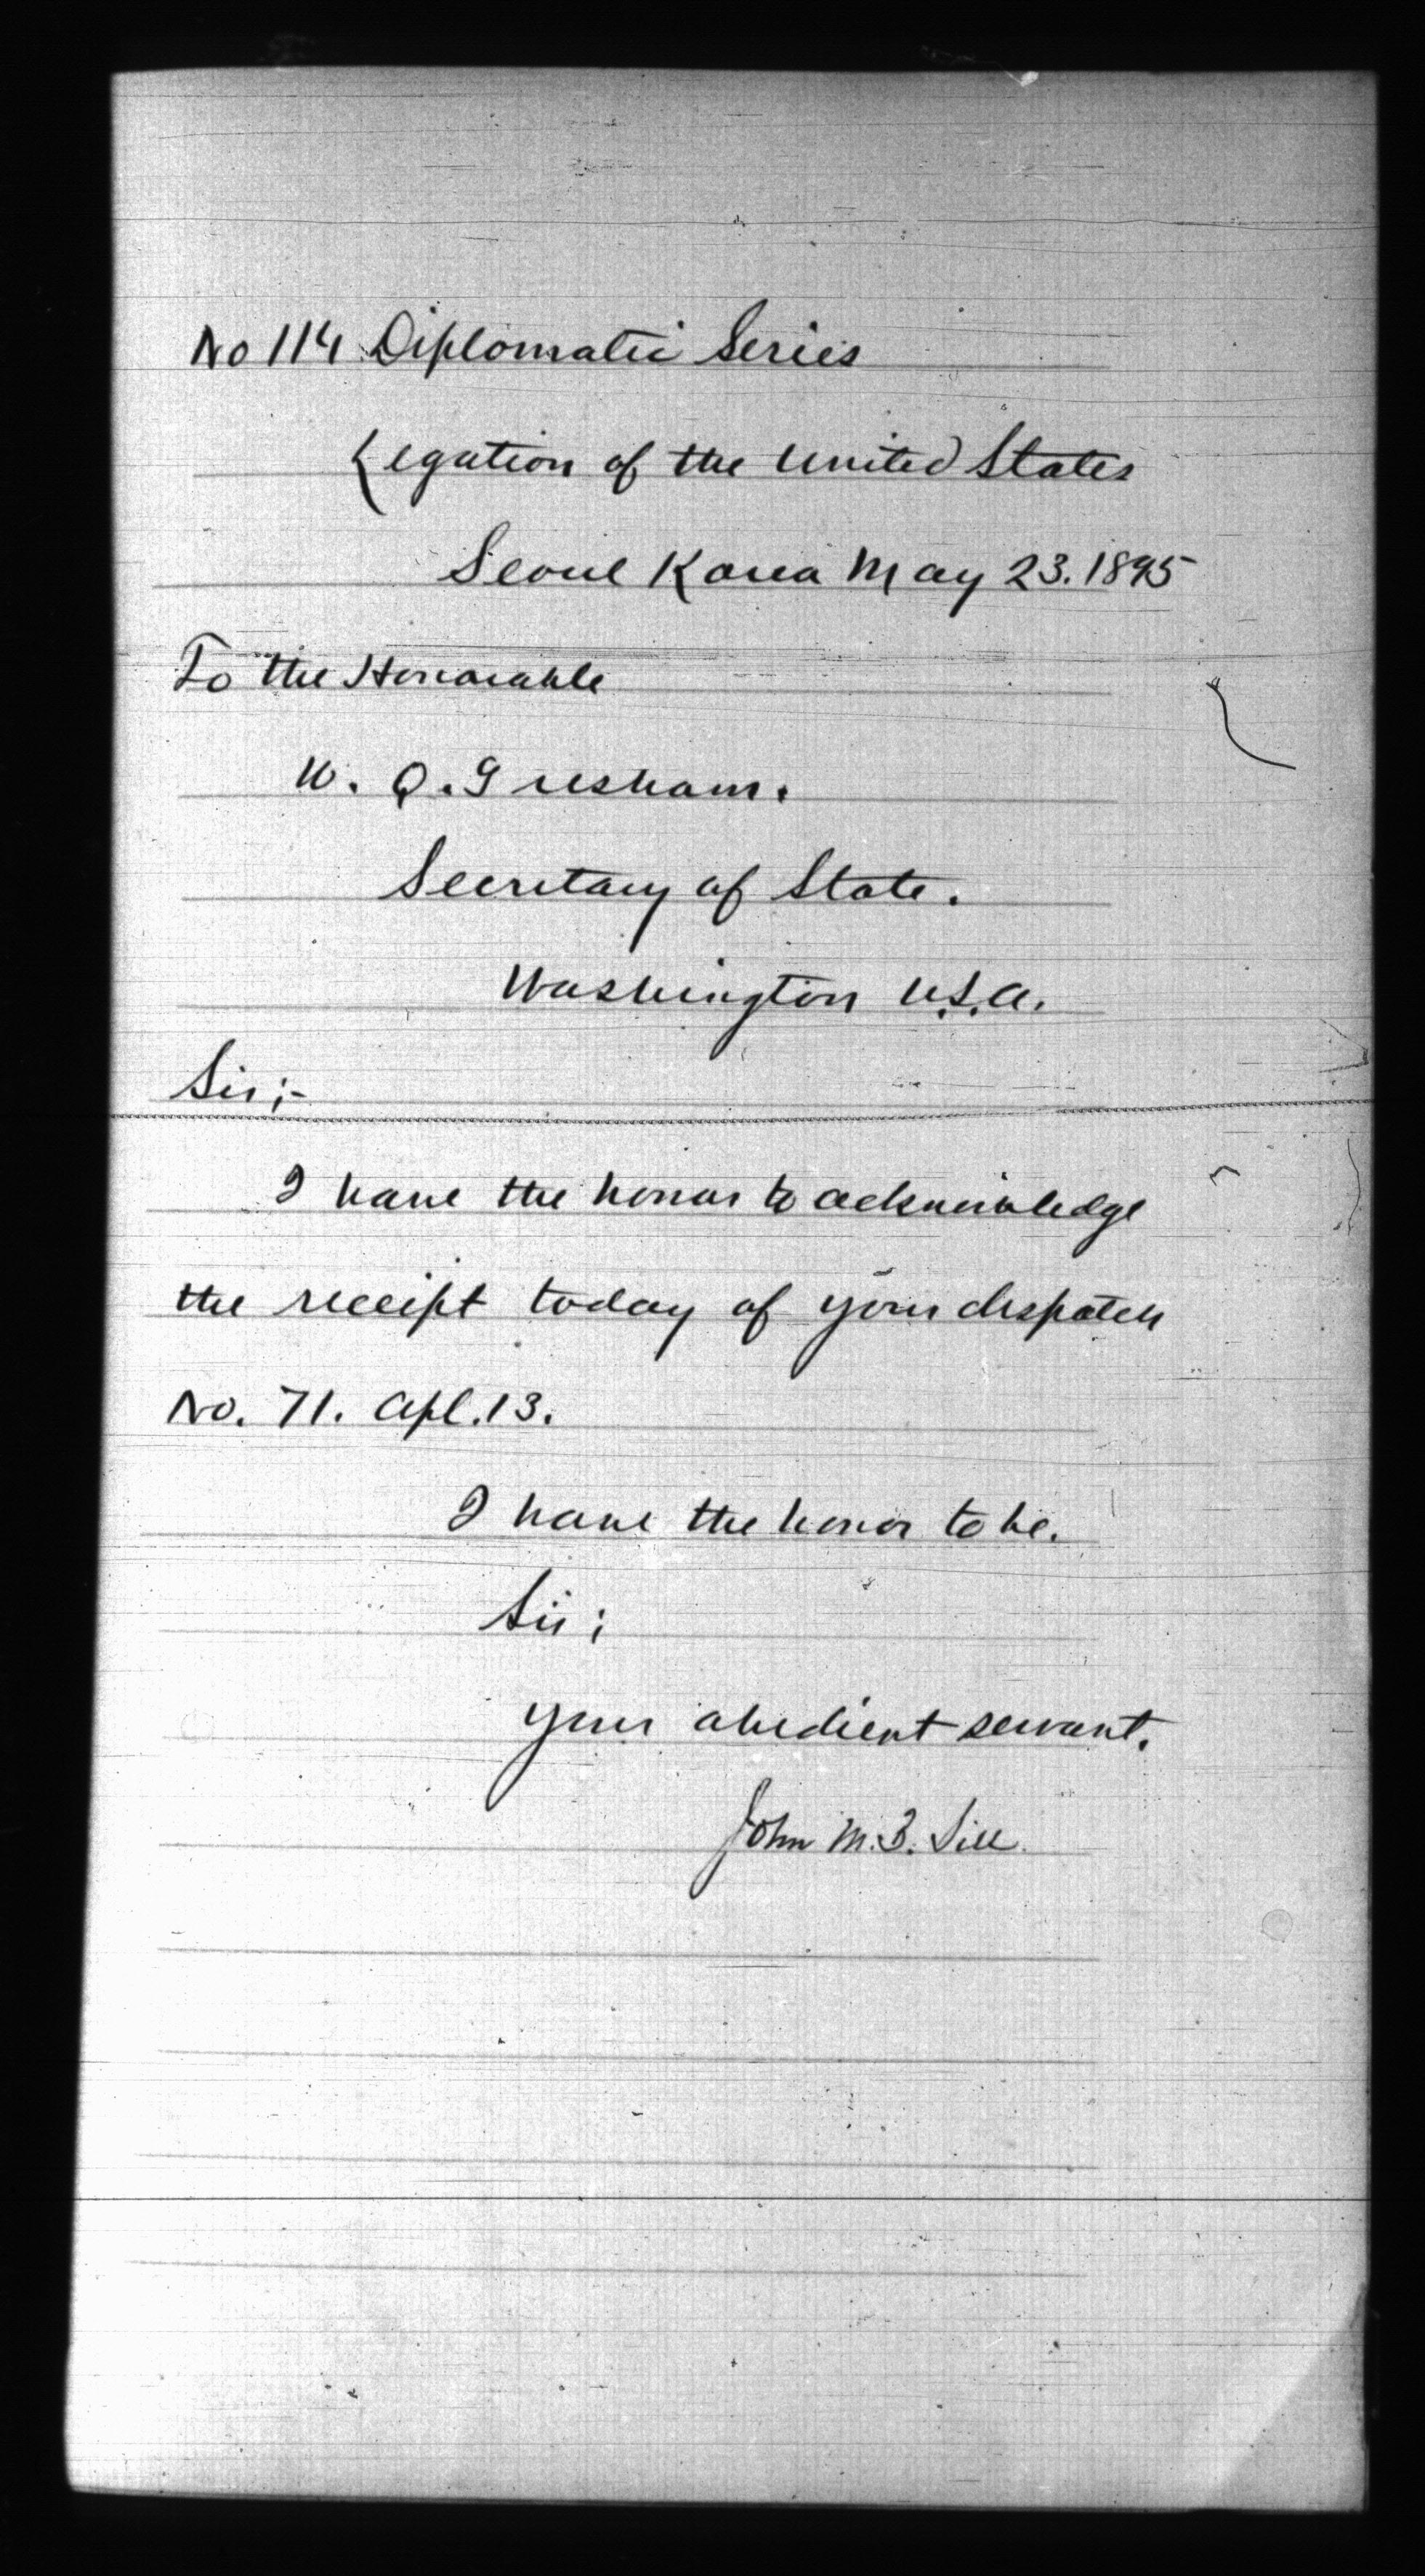 No 114 Diplomatic Series
Legation of the United States
Seoul Korea May 23. 1895
To the Honorable
W. Q. Gresham.
Secretary of State.
Washington U.S.A.
Sir;-
I have the honor to acknowledge
the receipt today of your dispatch
No. 71. Apl. 13.
I have the honor to be.
Sir;
your obedient servant.
John M. B. Sill.